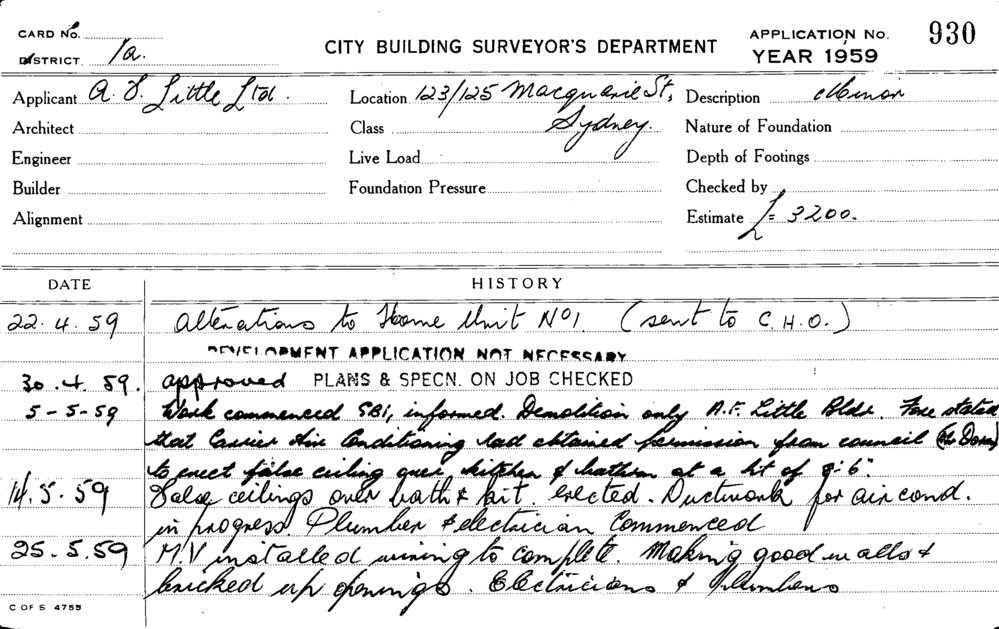 CARD No.
CITY BUILDING SURVEYOR'S DEPARTMENT
APPLICATION No. 930
DISTRICT 1a.
YEAR 1959
Applicant A. F. Little Ltd. Location 123/125 Macquarie St, Description Minor
Architect Class Sydney. Nature of Foundation
Engineer Live Load Depth of Footings
Builder Foundation Pressure Checked by
Alignment Estimate £= 3200.
DATE HISTORY
22.4.59 Alterations to Home Unit No1. (sent to C.H.O.)
DEVELOPMENT APPLICATION NOT NECESSARY
30.4.59. approved PLANS & SPECN. ON JOB CHECKED
5-5-59 Work commenced SBI, informed. Demolition only A.F. Little Bldr. Fore stated
that Carrier Air Conditioning had obtained permission from council
to erect false ceiling over kitchen & bathrm at a ht of 8'-6"
14.5.59 False ceilings over bath & kit. erected. Ductwork for air cond.
in progress. Plumber & electrician commenced
25.5.59 M.V installed wiring to complete. Making good walls &
bricked up openings. Electricians & Plumbers
C OF S 4755